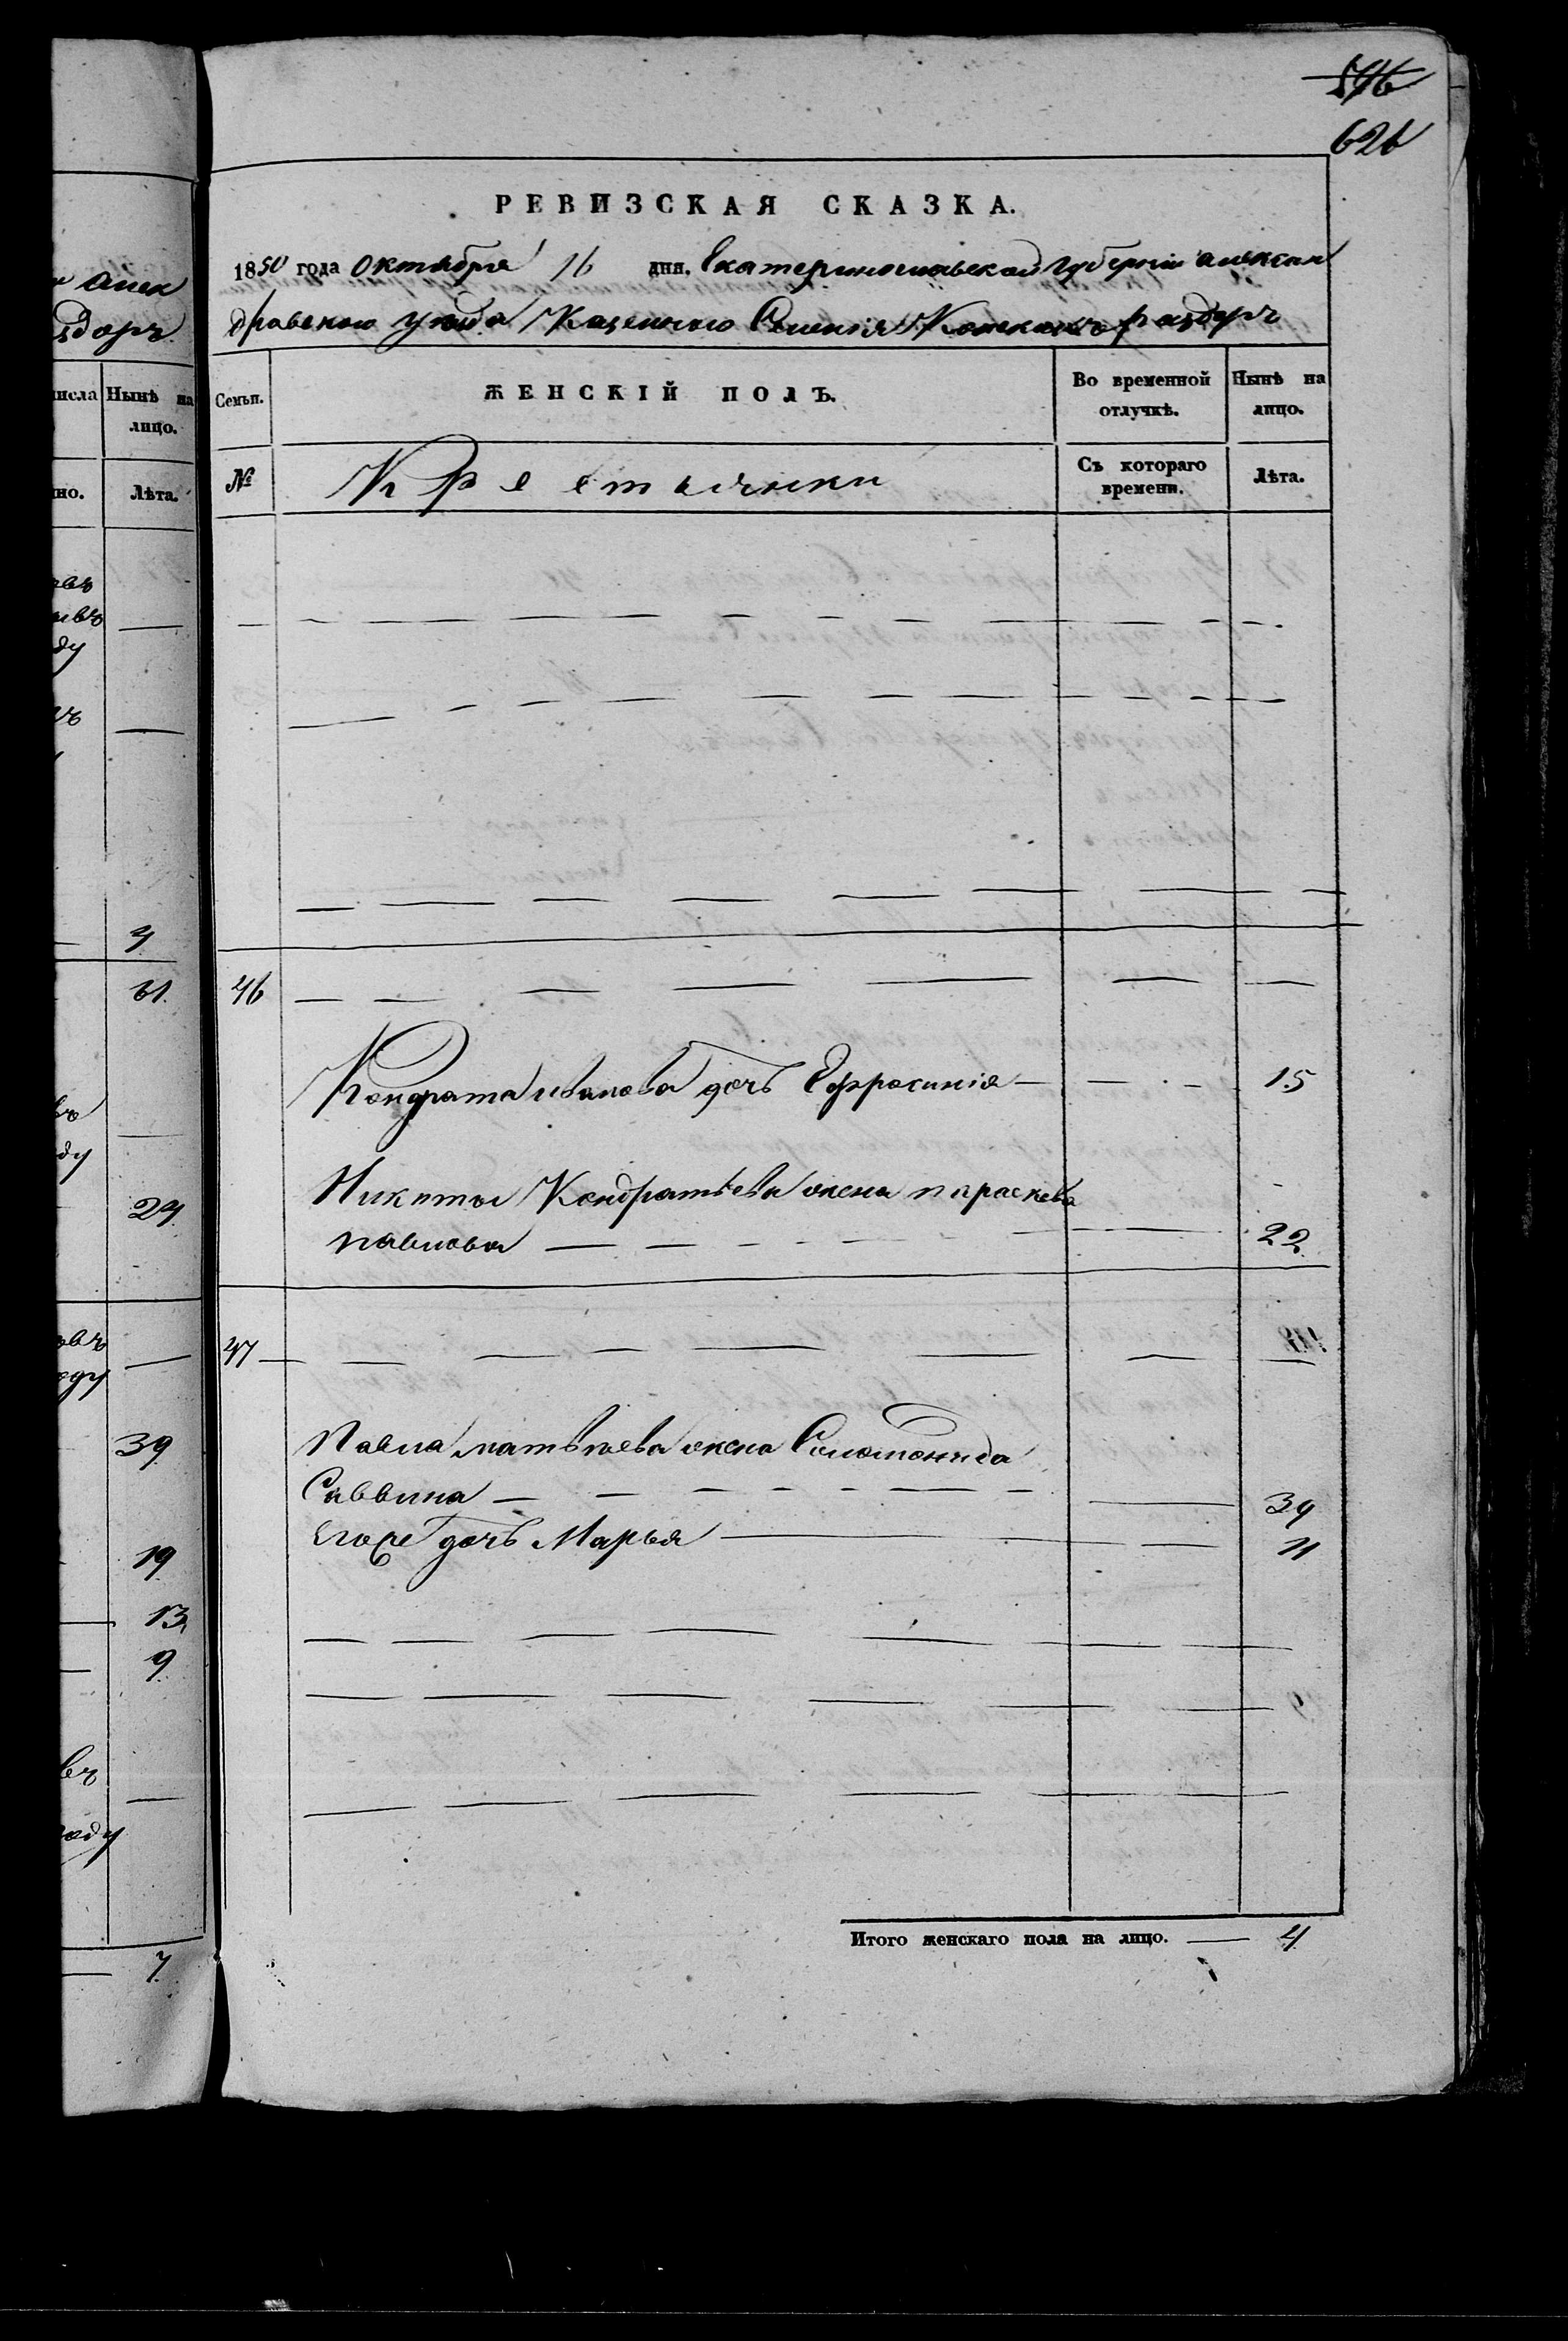 626
РЕВИЗСКАЯ СКАЗКА.
1850 года Октября 16 дня. Екатеринославской губерніи Алексан
дровскаго уѣзда Казеннаго Селенія Раздоръ
Семьи. ЖЕНСКІЙ ПОЛЪ. Во временной отлучкѣ. Нынѣ на лицо.
№ Крестьянки Съ котораго времени. Лѣта.
46
Кондрата Иванова дочь Ефросинія 15
Никиты Кондратьева жена Параскева
Павлова 22
47
Павла Матвѣева жена Соломонида
Саввина 39
Егоже дочь Марья 11
Итого женскаго пола на лицо. 4
Алек
здоръ
исла Нынѣ на лицо.
но. Лѣта.
евъ
ду
4
61
въ
ду
24
овъ
оду
39
19
13
9
въ
году
7